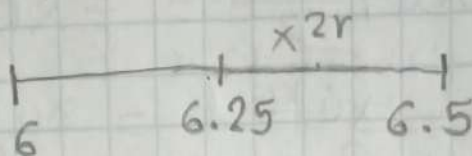 x2r
6 6.25 6.5